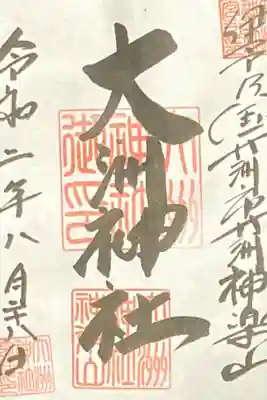 伊予乃国大洲市大洲神楽山
大洲神社
令和二年八月廿八日